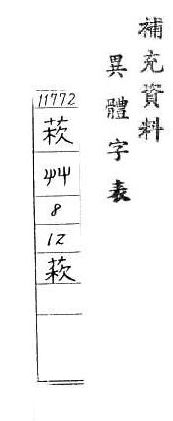 補充資料
異體字表
11772
艸
8
12